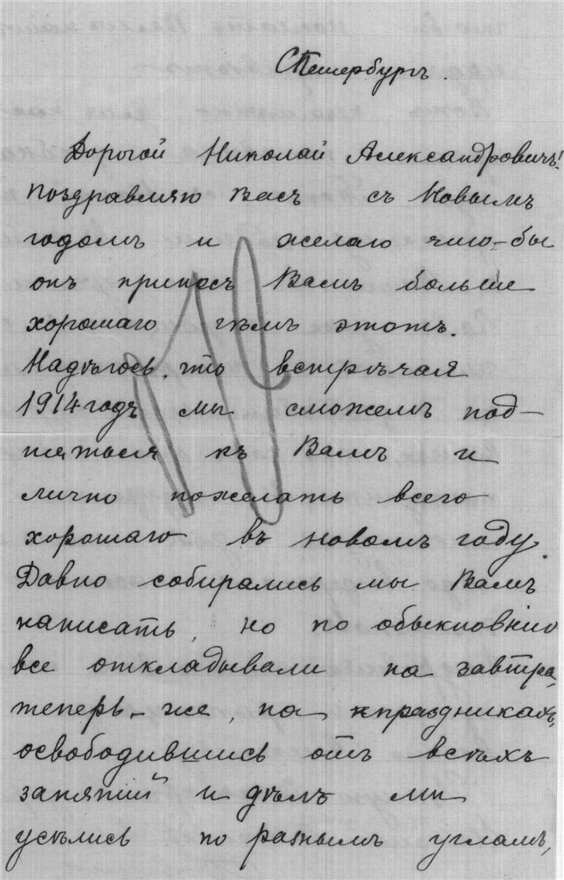 СПетербургъ.
Дорогой Николай Александровичъ!
поздравляю Васъ съ Новымъ
годомъ и желаю что-бы
онъ принесъ Вамъ больше
хорошаго чѣмъ этотъ.
Надѣюсь, что встрѣчая
1914 годъ мы сможемъ под-
няться къ Вамъ и
лично пожелать всего
хорошаго въ новомъ году.
Давно собирались мы Вамъ
написать, но по обыкновѣнію
все откладывали на завтра,
теперь-же, на праздникахъ,
освободившись отъ всѣхъ
занятій и дѣлъ мы
усѣлись по разнымъ угламъ,